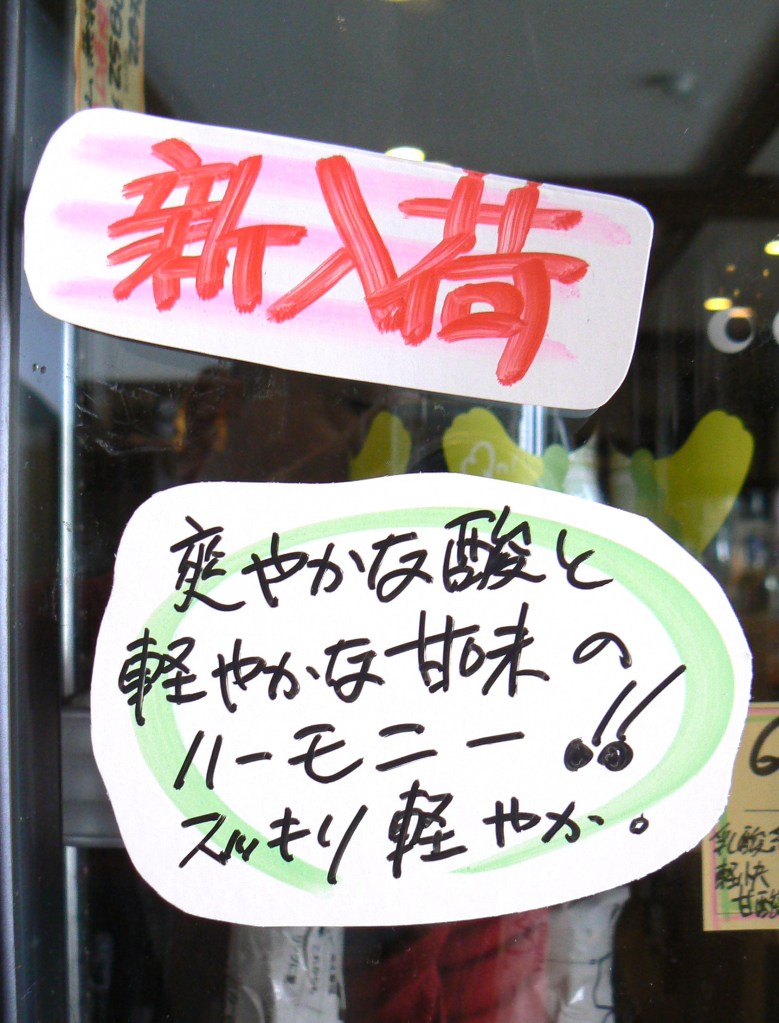 新入荷
爽やかな酸と
軽やかな甘味の
ハーモニー!!
スッキリ軽やか。
乳酸
軽快
甘酸